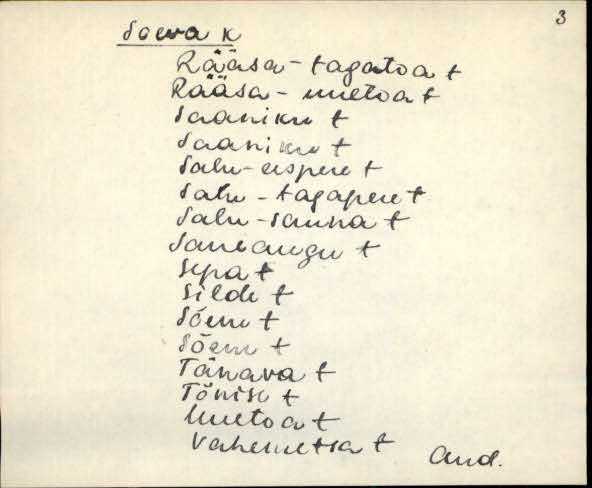 3
Soeva k
Rääsa-tagatoa t
Rääsa-uuetoa t
Saaniku t
Saaniku t
Salu-eespere t
Salu-tagapere t
Salu-sauna t
t
Sepa t
Silde t
Sõeru t
Sõeru t
Tänava t
Tõnisu t
Uuetoa t
Vahemetsa t
And.